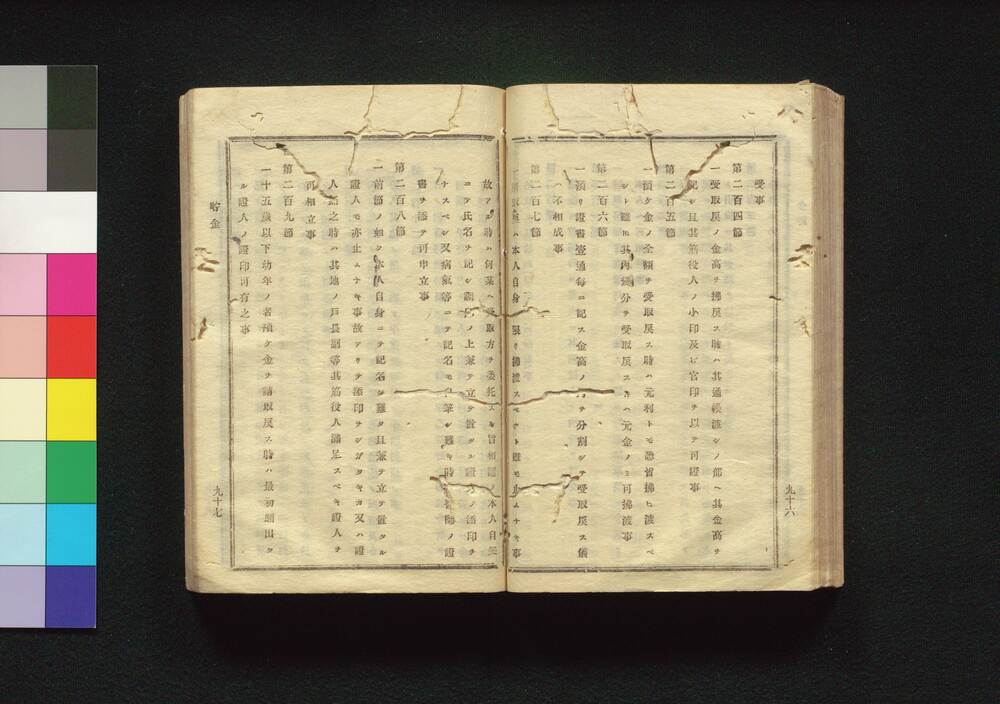 受事
第二百四節
一受取戻ノ金高ヲ拂戻ス時ハ其通帳渡シノ部ヘ其金高ヲ
記シ且其筋役人ノ小印及ヒ官印ヲ以テ可證事
第二百五節
一預ケ金ノ全額ヲ受取戻ス時ハ元利トモ悉皆拂ヒ渡スベ
シト雖モ其内幾分ヲ受取戻スキハ元金ノミ可拂渡事
第二百六節
一預リ證書壹通毎ニ記ス金高ノ內ヲ分割シテ受取戻ス儀
ハ不相成事
第二百七節
ハ本人自身ニ限リ拂渡スベシト雖モ止ムナキ事
九十六
故アル時ハ何某ヘ受取方ヲ委托スル旨相認メ本人自
ニテ氏名ヲ記シ調印ノ上兼テ立テ置タル證人ノ添印ヲ
ナスベシ又病氣等ニテ記名モ自筆シ難キ時ハ ノ證
書ヲ添テ可申立事
第二百八節
一前節ノ如ク本人自身ニテ記名シ難ク且兼テ立テ置タル
證人モ亦止ムナキ事故アリテ添印ヲシガタキカ又ハ證
人 之時ハ其地ノ戸長副等其筋役人滿足スベキ證人ヲ
可相立事
第二百九節
一十五歲以下幼年ノ者預ケ金ヲ請取戻ス時ハ最初願出タ
ル證人ノ證印可有之事
貯金
九十七